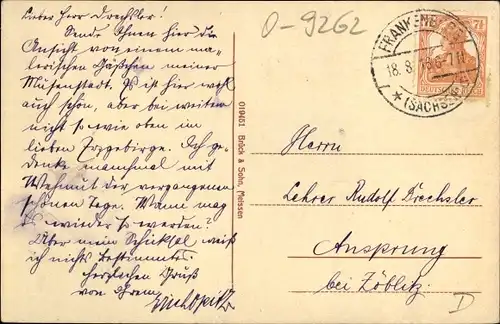 Lieber Herr Drechsler!
Sende Ihnen hier die
Ansicht von einem ma-
lerischen Gäßchen meiner
Musenstadt. Es ist hier wohl
auch schön, aber bei weitem
nicht so wie oben im
lieben Erzgebirge. Ich ge-
denke manchmal mit
Wehmut der vergangenen
schönen Tage. Wann mag
es wieder so werden?
Über mein Schicksal weiß
ich nichts bestimmtes.
Herzlichen Gruß
von Ihrem
Erich Opitz
019451 Brück & Sohn, Meissen
O-9262
FRANKENBERG
18.8.
(SACHSEN)
7½
DEUTSCHES
Herrn
Lehrer Rudolf Drechsler
Ansprung
bei Zöblitz
D